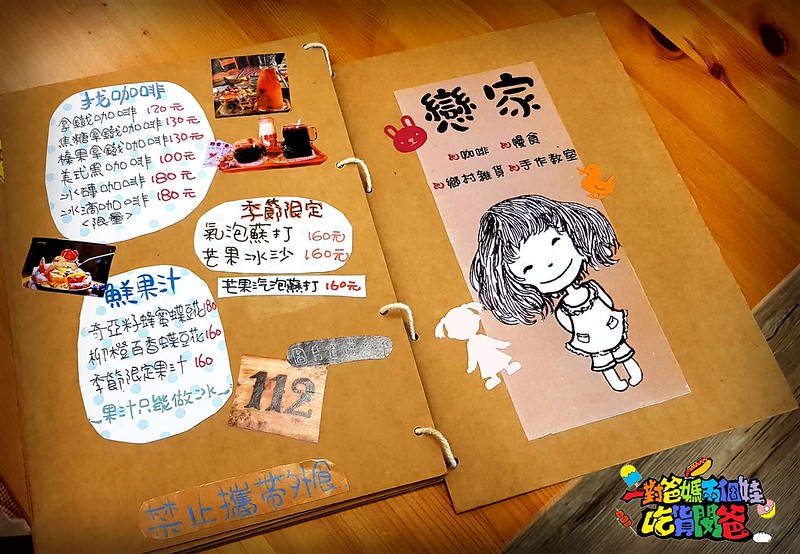 找咖啡
拿鐵咖啡 120元
焦糖拿鐵咖啡 130元
榛果拿鐵咖啡 130元
美式黑咖啡 100元
冰磚咖啡 180元
冰滴咖啡 180元
<限量>
季節限定
氣泡蘇打 160元
芒果冰沙 160元
芒果汽泡蘇打 160元
鮮果汁
奇亞籽蜂蜜蝶豆花 180
柳橙百香蝶豆花 160
季節限定果汁 160
～果汁只能做冰～
112
禁止攜帶外食
戀家
咖啡 慢食
鄉村雜貨 手作教室
一對爸媽兩個娃
吃貨閔爸